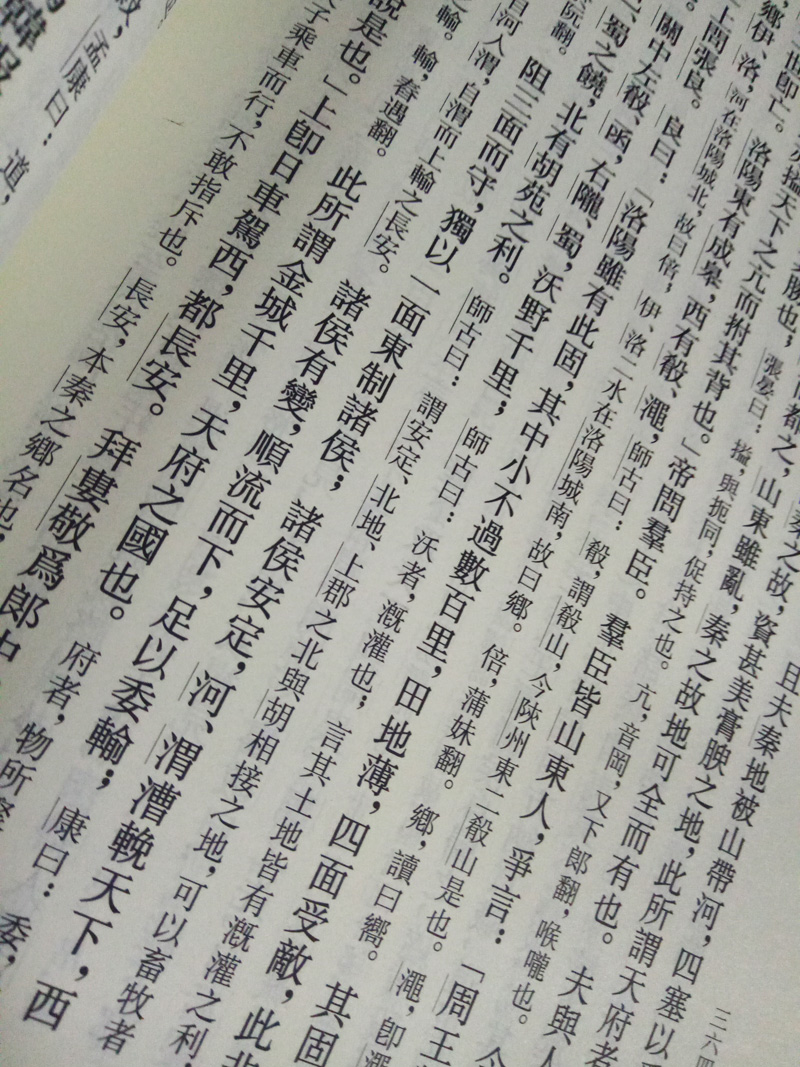 三六四
且夫秦地被山帶河，四塞以
秦之故，資甚美膏腴之地，此所謂天府者
都之，山東雖亂，秦之故地可全而有也。夫與人
勝也；張晏曰：搤，與扼同，促持之也。亢，音岡，又下郎翻，喉嚨也。
搤天下之亢而拊其背也。」帝問羣臣。羣臣皆山東人，爭言：「周王
即亡。洛陽東有成皋，西有殽、澠，師古曰：殽，謂殽山，今陝州東二殽山是也。澠，卽澠
鄉伊、洛，河在洛陽城北，故曰倍，伊、洛二水在洛陽城南，故曰鄉。倍，蒲妹翻。鄉，讀曰嚮。其固
上問張良。良曰：「洛陽雖有此固，其中小不過數百里，田地薄，四面受敵，此非
關中左殽、函，右隴、蜀，沃野千里；師古曰：沃者，溉灌也；言其土地皆有溉灌之利，
蜀之饒，北有胡苑之利。師古曰：謂安定、北地、上郡之北與胡相接之地，可以畜牧者
阮翻。阻三面而守，獨以一面東制諸侯；諸侯安定，河、渭漕輓天下，西
自河入渭，自渭而上輸之長安。諸侯有變，順流而下，足以委輸；康曰：委，
之輸。輸，舂遇翻。此所謂金城千里，天府之國也。府者，物所
說是也。」上卽日車駕西，都長安。拜婁敬爲郎中
子乘車而行，不敢指斥也。長安，本秦之鄉名也，
孟康曰：
道，